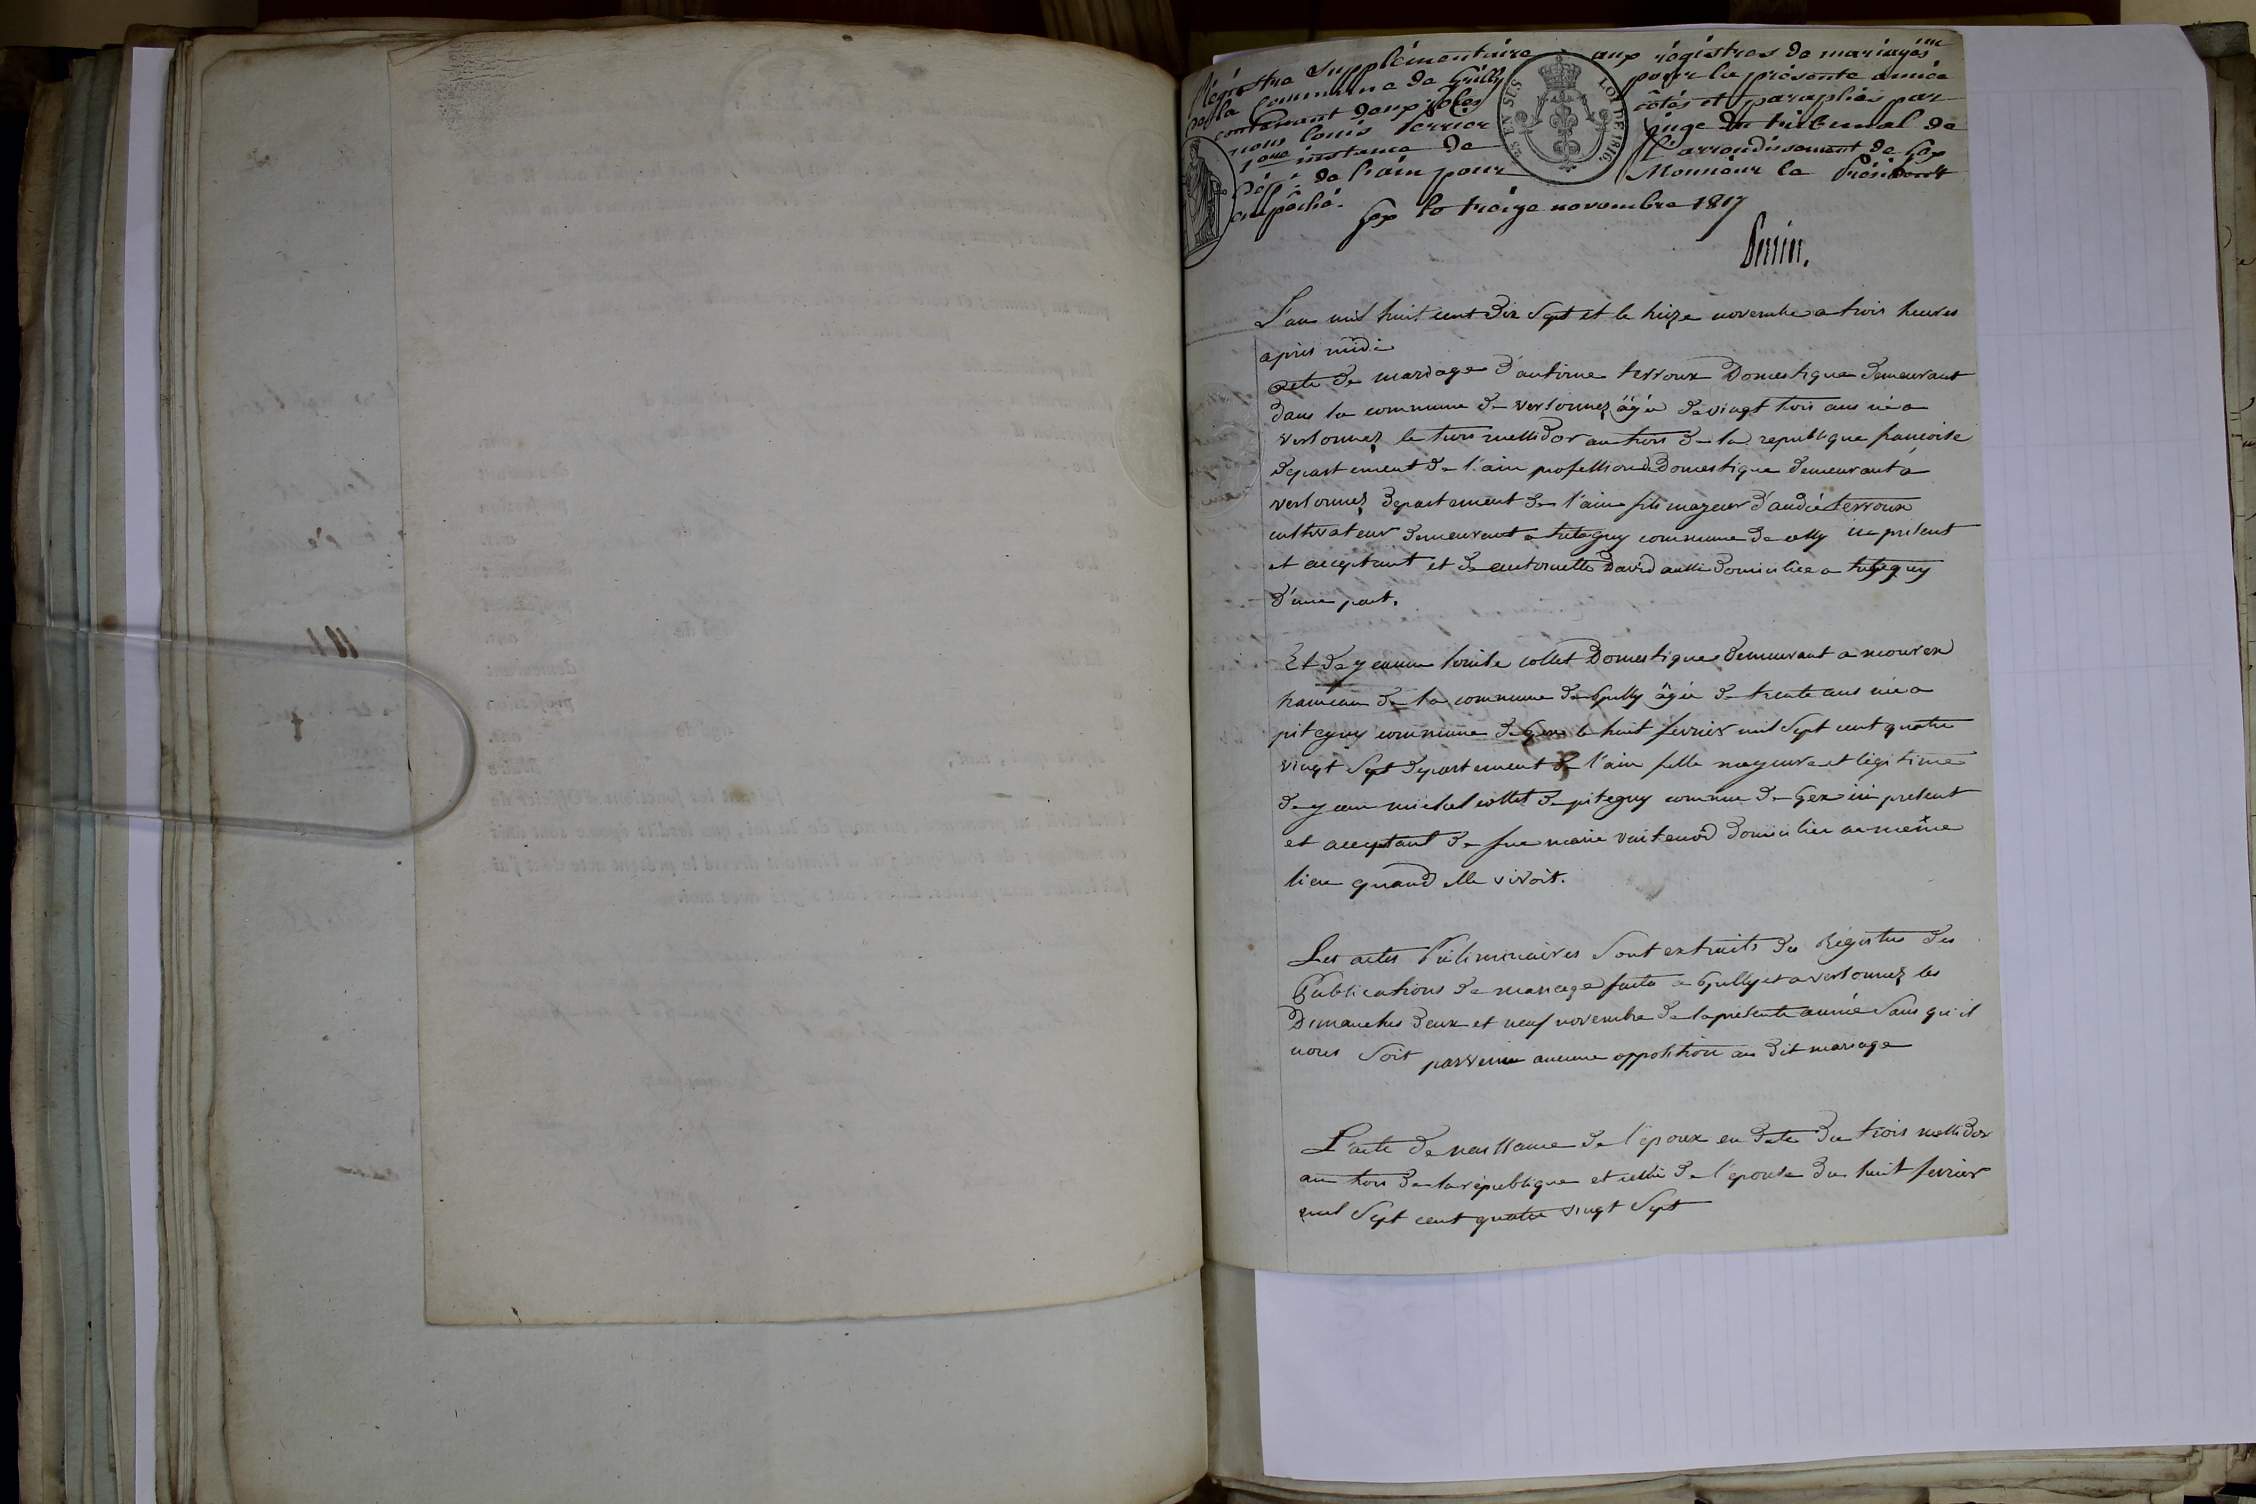 Régistre Supplémentaire aux régistres de mariages
de la Commune de Grilly pour la présente année
contenant deux rôles côtés et paraphés par
nous louis Perrier juge du tribunal de
1ere instance de l'arrondissement de Gex
Dépt de l'ain pour Monsieur le Président
empêché.
Gex le treize novembre 1817
Perrier.
L'an mil huit cent dix Sept et le seize novembre a trois heures
après midi
acte de mariage d'antoine terroux Domestique demeurant
dans la commune de versonnex âgé de vingt trois ans né a
versonnex le trois messidor an trois de la republique françoise
departement de l'ain profession de Domestique demeurant a
versonnex departement de l'ain fils majeur d'andré terroux
cultivateur demeurant a tutegny commune de cessy ici present
et acceptant et de antoinette David aussi domiciliée a tutegny
d'une part.
Et de jeanne louise collet Domestique demeurant a mourex
hameau de la commune de Grilly âgée de trente ans née a
pitegny commune de Gex le huit fevrier mil Sept cent quatre
vingt Sept departement de l'ain fille majeure et légitime
de jean michel collet de pitegny comune de Gex ici present
et acceptant de fue marie domiciliée au même
lieu quand elle vivoit.
Les actes Préliminaires Sont extraits des Régistres des
Publications de mariage faites a Grilly et a versonnex les
Dimanches deux et neuf novembre de la presente année Sans qu'il
nous Soit parvenu aucune opposition au dit mariage
L'acte de naissance de l'epoux en date du trois messidor
an trois de la république et celui de l'epouse du huit fevrier
mil Sept cent quatre vingt Sept